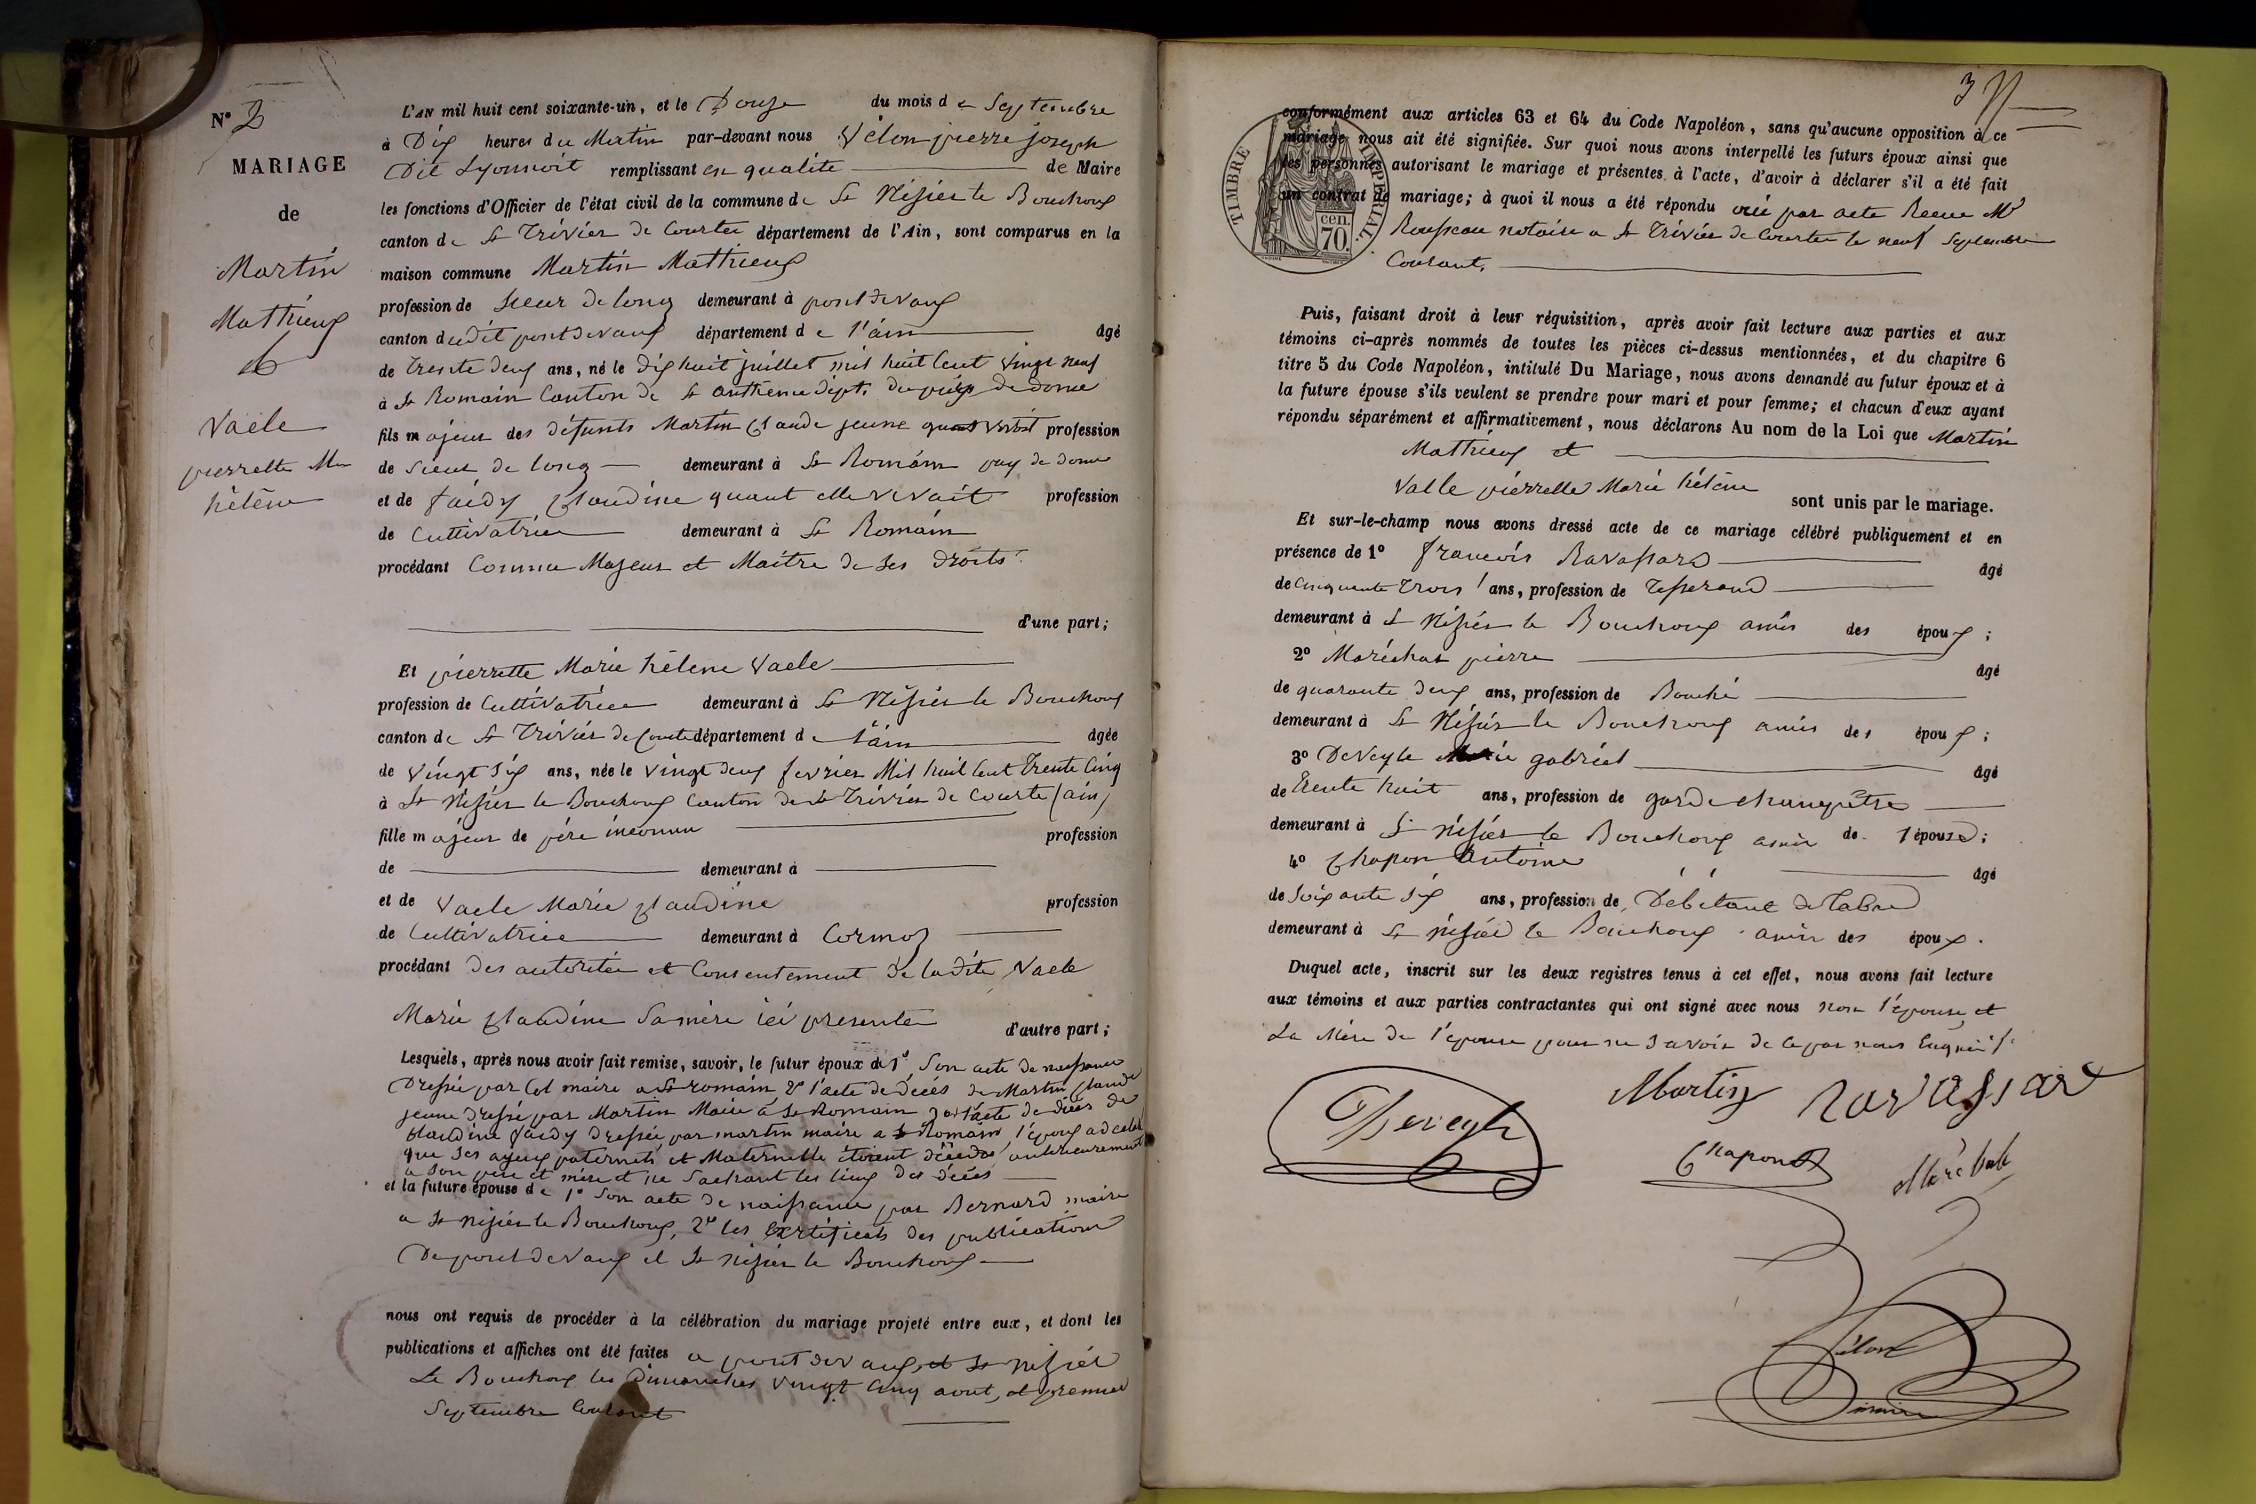 N° 2
MARIAGE
de
Martin
Mathieux
et
Vaele
pierrette Mie
hélène
L'AN mil huit cent soixante-un, et le Douze du mois de Septembre
à Dix heures du Matin par-devant nous Vélon pierre joseph
Dit Lyonnoit remplissant en qualité de Maire
les fonctions d'Officier de l'état civil de la commune de St Nizier le Bouchoux
canton de St Trivier de Courtes département de l'Ain, sont comparus en la
maison commune Martin Mathieux
profession de Sieur de long demeurant à pont devaux
canton dudit pont devaux département de l'ain âgé
de trente deux ans, né le dix huit juillet mil huit cent vingt neuf
à St Romain Canton de St anthème dept. du puis de dome
fils majeur des défunts Martin Claude jeune quant vivoit profession
de Sieur de long demeurant à St Romain puy de dome
et de faidy Claudine quant elle vivait profession
de Cultivatrice demeurant à St Romain
procédant Comme Majeur et Maitre de ses droits
d'une part;
Et pierrette Marie hélène Vaele
profession de Cultivatrice demeurant à St Nizier le Bouchoux
canton de St Trivier de Courte département de l'ain âgée
de vingt six ans, née le vingt deux fevrier Mil huit cent trente cinq
à St Nizier le Bouchoux Canton de St Trivier de Courte (ain)
fille majeur de père inconnu profession
de demeurant à
et de Vaele Marie Claudine profession
de Cultivatrice demeurant à Cormoz
procédant des autoritée et Consentement de ladite Vaele
Marie Claudine Sa mère ici presente d'autre part;
Lesquels, après nous avoir fait remise, savoir, le futur époux de 1° Son acte de naissance
Dressée par Col maire a St romain 2° l'acte de décés de Martin Claude
jeune dressé par Martin Maire à St Romain 3° l'acte de décés de
Claudine faidy dressée par martin maire a St Romain, l'époux a déclaré
que Ses ayeux paternels et Maternelle étoient décédés antérieurement
a Son père et mère et ne Sachant les lieux des décés
et la future épouse de 1° Son acte de naissance par Bernard maire
a St nizier le Bouchoux, 2° les Certificats des publications
De pont de Vaux et St nizier le Bouchoux
nous ont requis de procéder à la célébration du mariage projeté entre eux, et dont les
publications et affiches ont été faites a pont devaux, et St nizier
Le Bouchoux les Dimanches vingt cinq aout, et premier
Septembre Courant
3
TIMBRE IMPERIAL
cen. 70.
conformément aux articles 63 et 64 du Code Napoléon, sans qu'aucune opposition à ce
mariage nous ait été signifiée. Sur quoi nous avons interpellé les futurs époux ainsi que
les personnes autorisant le mariage et présentes à l'acte, d'avoir à déclarer s'il a été fait
un contrat de mariage; à quoi il nous a été répondu oui par acte Recue Me
Rousseau notaire a St Trivier de Courtes le neuf Septembre
Courant.
Puis, faisant droit à leur réquisition, après avoir fait lecture aux parties et aux
témoins ci-après nommés de toutes les pièces ci-dessus mentionnées, et du chapitre 6
titre 5 du Code Napoléon, intitulé Du Mariage, nous avons demandé au futur époux et à
la future épouse s'ils veulent se prendre pour mari et pour femme; et chacun d'eux ayant
répondu séparément et affirmativement, nous déclarons Au nom de la Loi que Martin
Mathieux et
Valle pierrette Marie hélène sont unis par le mariage.
Et sur-le-champ nous avons dressé acte de ce mariage célébré publiquement et en
présence de 1° francois Ravassard âgé
de Cinquante trois ans, profession de Tisserand
demeurant à St Nizier le Bouchoux amis des époux;
2° Maréchat pierre âgé
de quarante deux ans, profession de Bouché
demeurant à St Nizier le Bouchoux amis des époux;
3° Deveyle Marie gabriel âgé
de trente huit ans, profession de garde champêtre
demeurant à St Nizier le Bouchoux amis de l'épouse;
4° Chapon Antoine âgé
de Soixante six ans, profession de Débitant de Tabac
demeurant à St nizier le Bouchoux amis des époux.
Duquel acte, inscrit sur les deux registres tenus à cet effet, nous avons fait lecture
aux témoins et aux parties contractantes qui ont signé avec nous non l'épouse, et
La Mère de l'épouse pour ne savoir de ce par nous Enquis
Martin Ravassard
Deveyle
Chapon
Maréchat
Vélon
maire